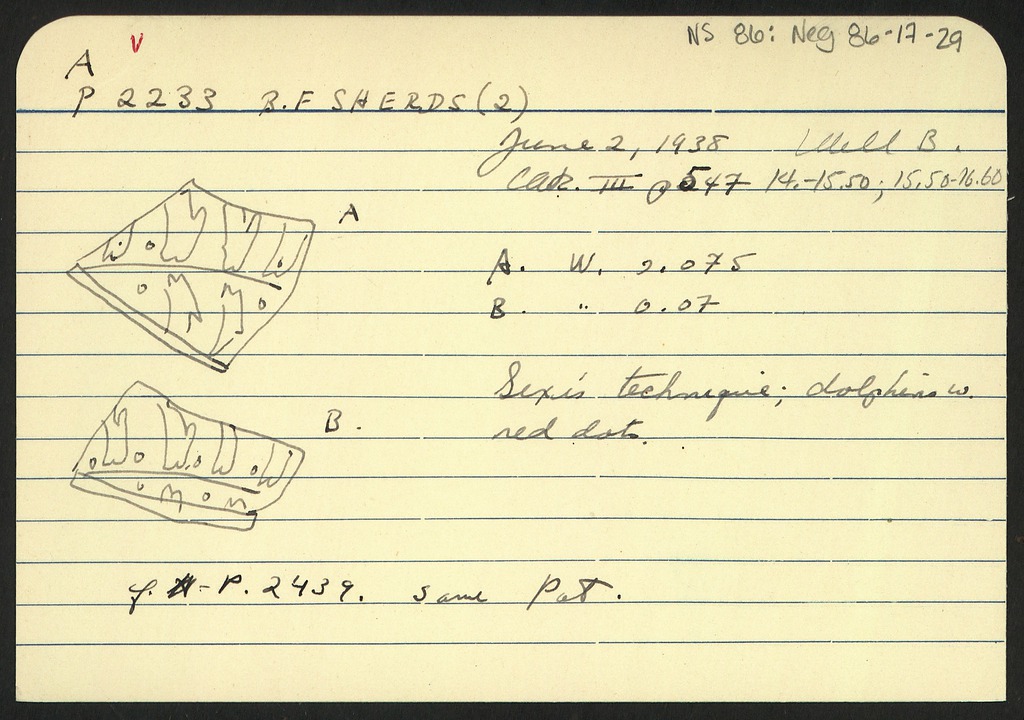 NS 86: Neg 86-17-29
A V
P 2233 B.F SHERDS (2)
June 2, 1938 Well B.
III p 547 14.-15.50; 15.50-16.60
A
A. W. 0.075
B. " 0.07
Sexis technique; dolphins w.
B.
red dots.
cf. P. 2439. same Pot.